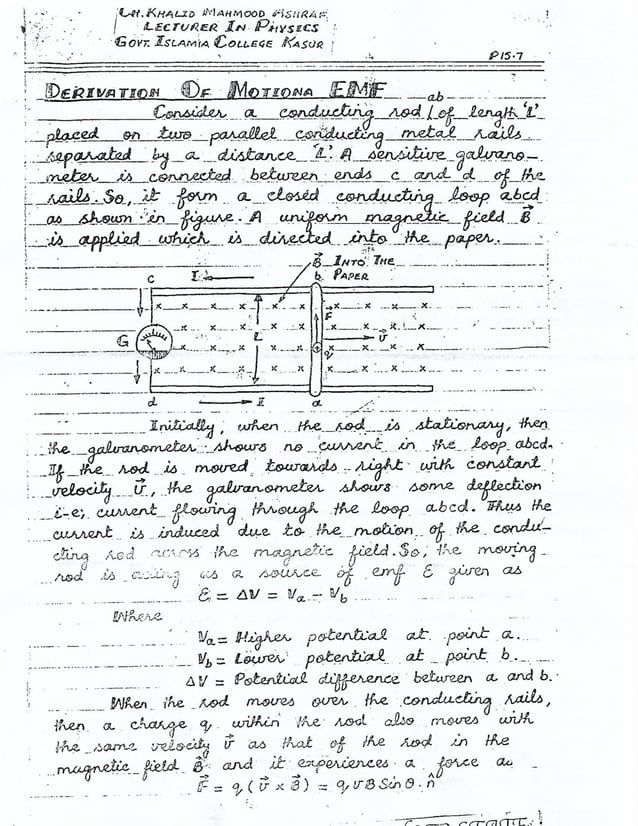 CH. KHALID MAHMOOD ASHRAF
LECTURER IN PHYSICS
GOVT. ISLAMIA COLLEGE KASUR
P15.7
DERIVATION OF MOTIONA EMF
ab
Consider a conducting rod / of length 'L'
placed on two parallel conducting metal rails
separated by a distance 'L'. A sensitive galvano-
meter is connected between ends c and d of the
rails. So, it form a closed conducting loop abcd
as shown in figure. A uniform magnetic field B⃗
is applied which is directed into the paper.
B⃗ INTO THE
PAPER
c I b
F⃗
G L v⃗
q
d I a
Initially, when the rod is stationary, then
the galvanometer shows no current in the loop abcd.
If the rod is moved towards right with constant
velocity v⃗, the galvanometer shows some deflection
i-e; current flowing through the loop abcd. Thus the
current is induced due to the motion of the condu-
cting rod across the magnetic field. So, the moving
rod is acting as a source of emf ε given as
ε = ΔV = Va - Vb
Where
Va = Higher potential at point a.
Vb = Lower potential at point b.
ΔV = Potential difference between a and b.
When the rod moves over the conducting rails,
then a charge q within the rod also moves with
the same velocity v⃗ as that of the rod in the
magnetic field B⃗ and it experiences a force as
F⃗ = q (v⃗ x B⃗) = q v B Sin θ. n̂